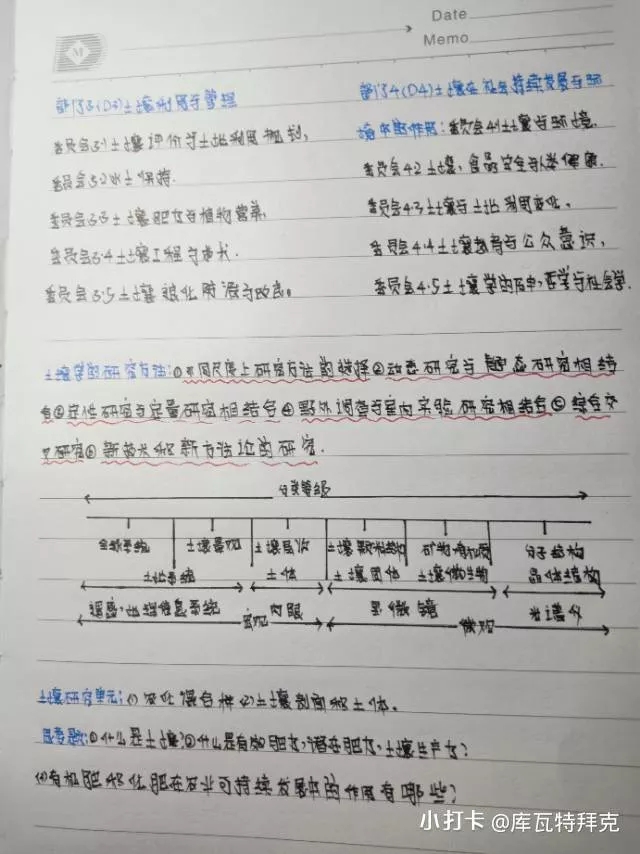 M
Date
Memo
部门3(D3)土壤利用与管理
委员会3·1土壤评价与土地利用规划,
委员会3·2水土保持.
委员会3·3土壤肥力与植物营养.
委员会3·4土壤工程与技术.
委员会3·5土壤退化防治与改良。
部门4(D4)土壤在社会持续发展与环
境中的作用:委员会4·1土壤与环境.
委员会4·2土壤,食品安全与人类健康.
委员会4·3土壤与土地利用变化.
委员会4·4土壤教育与公众意识,
委员会4·5土壤学的历史,哲学与社会学.
土壤学的研究方法:①不同尺度上研究方法的选择②动态研究与静态研究相结
合③定性研究与定量研究相结合④野外调查与室内实验研究相结合⑤综合交
叉研究⑥新技术和新方法论的研究.
分类等级
全球系统 土壤景观 土壤层次 土壤颗粒结构 矿物有机质 分子结构
土地系统 土体 土壤团体 土壤微生物 晶体结构
遥感,地理信息系统 宏观 肉眼 显微镜 微观 光谱仪
土壤研究单元:(1)农化混合样(2)土壤剖面和土体。
思考题:①什么是土壤?②什么是有效肥力,潜在肥力,土壤生产力?
有机肥和化肥在农业可持续发展中的作用有哪些?
小打卡 @库瓦特拜克